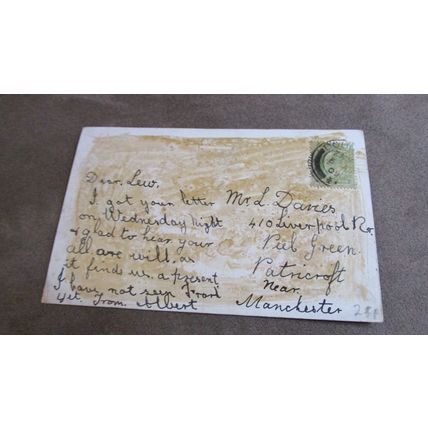 Dear. Lew.
I got your letter
on, Wednesday Night
& glad to hear your
all are will. as
it finds us. a present
I have not seen
yet. From. Albert
Mr L. Davies
410 Liverpool Rd.
Peel Green.
Patricroft
Near.
Manchester